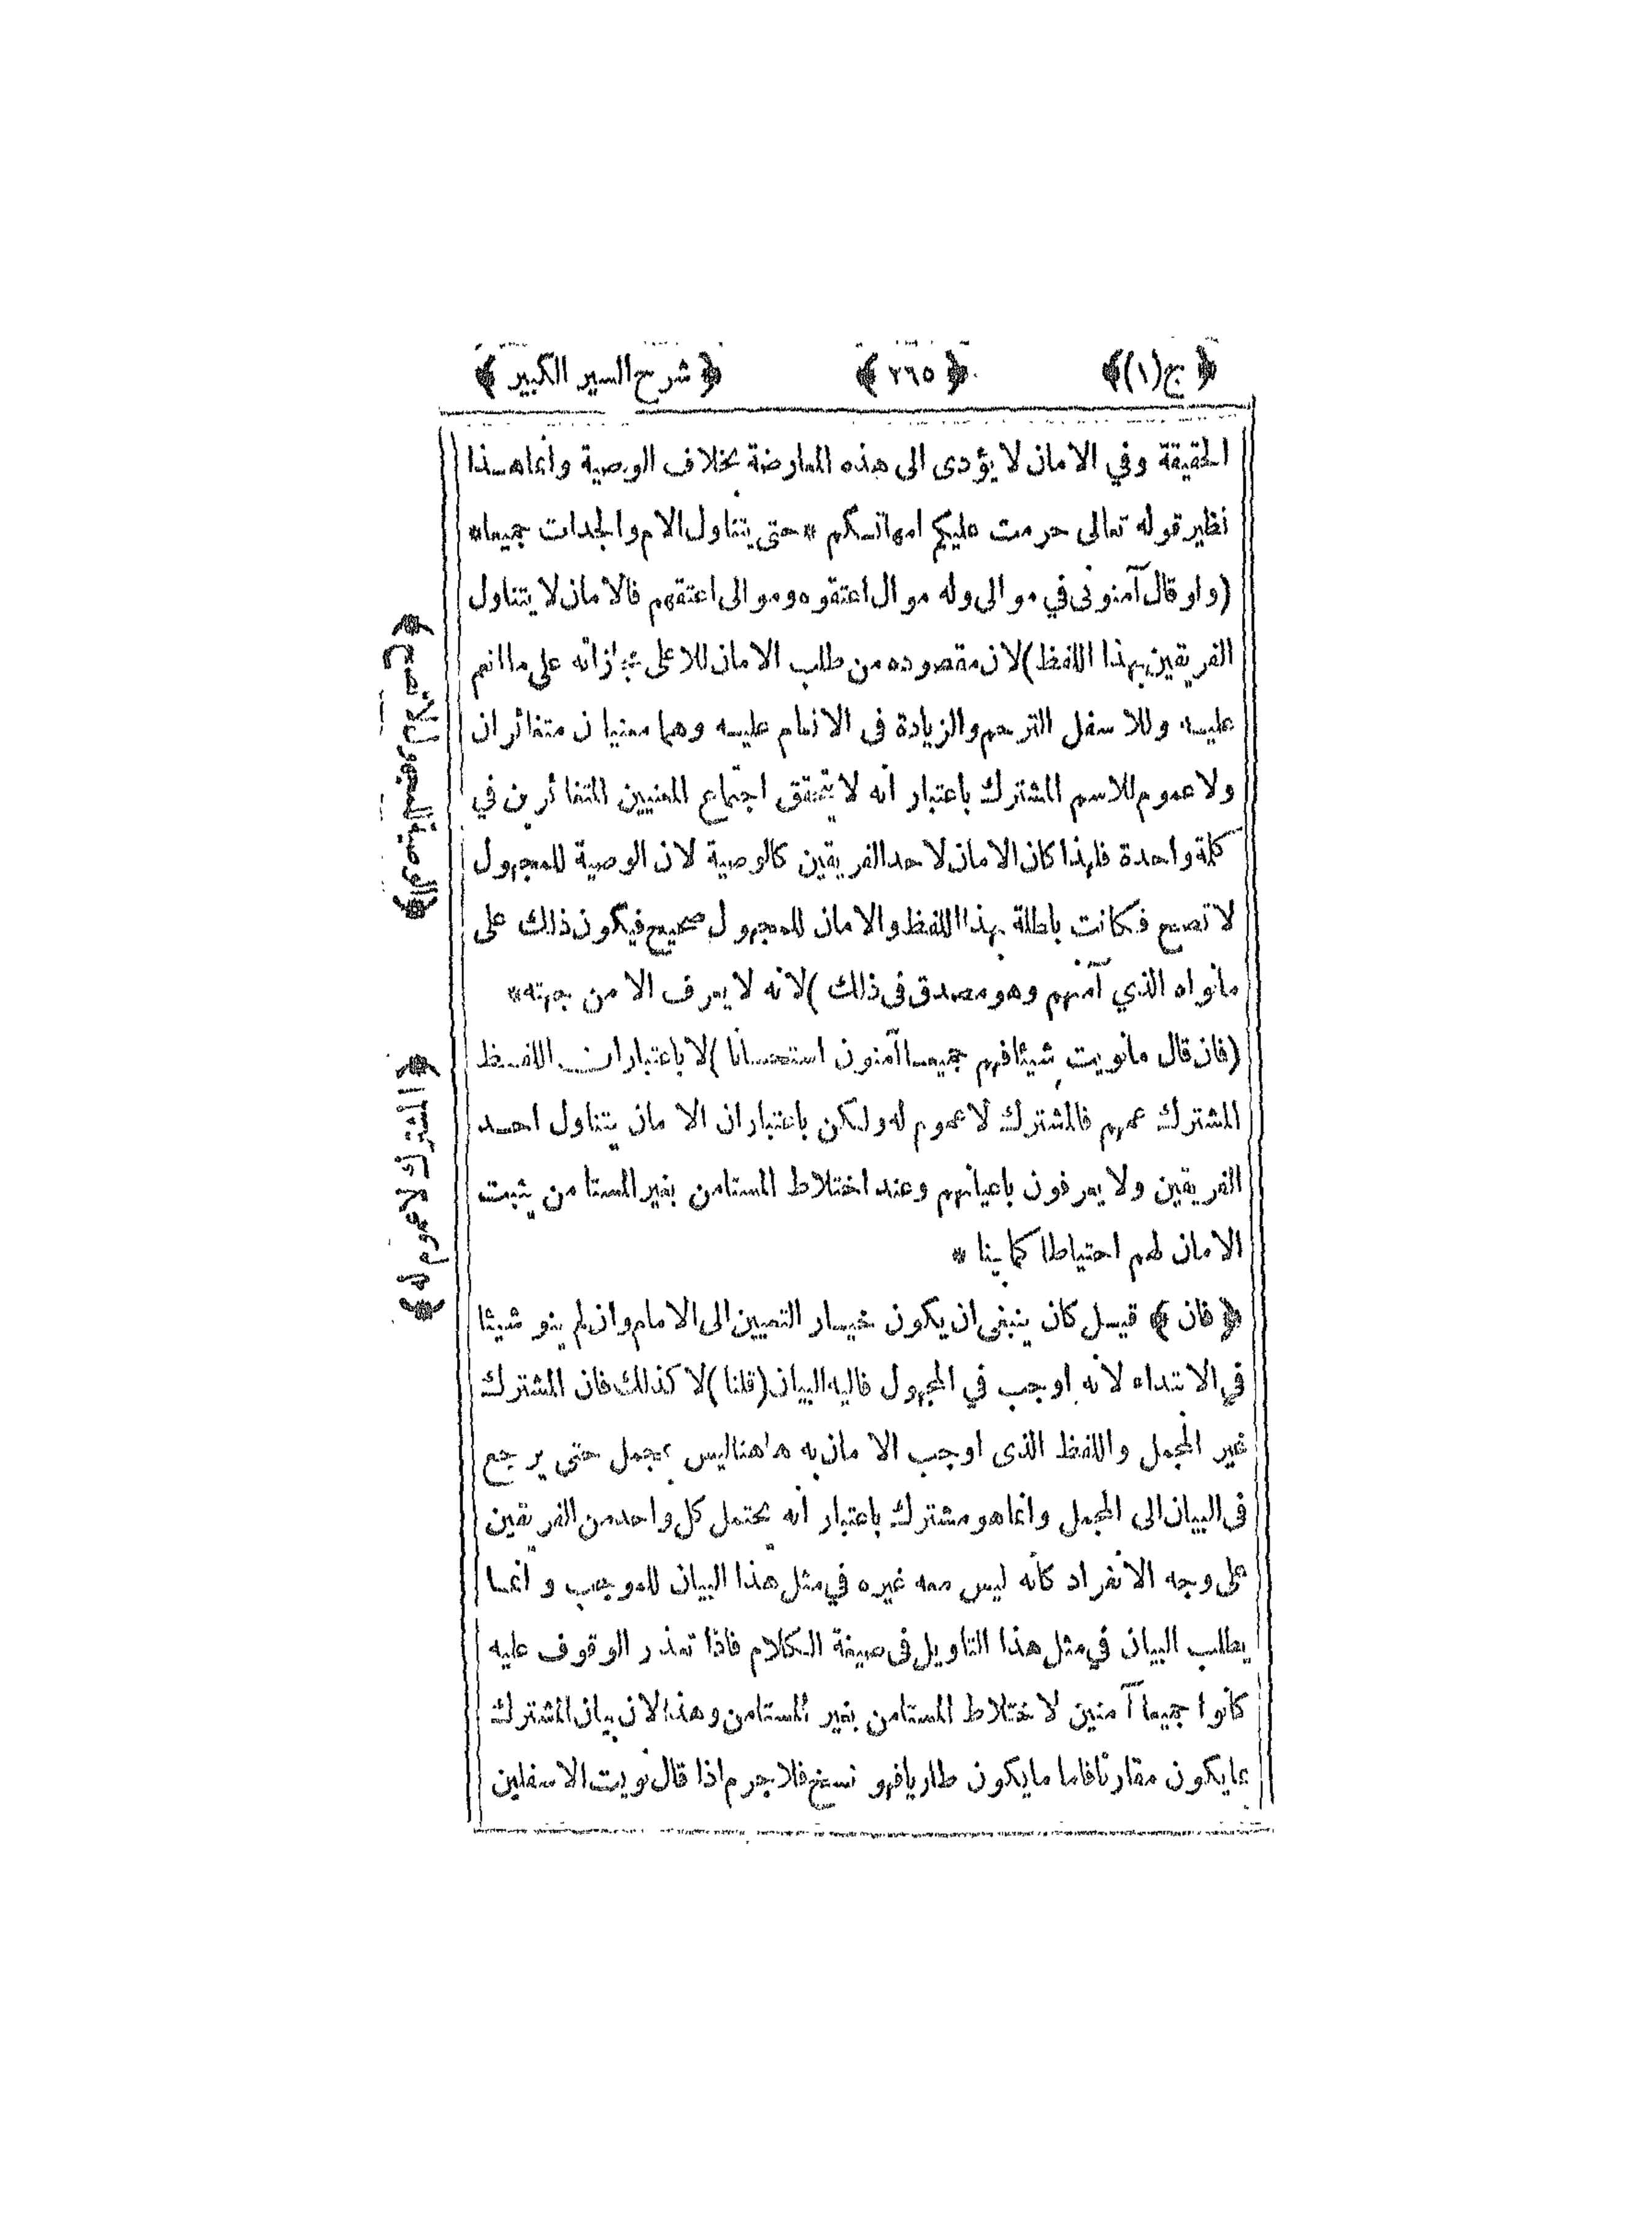 ﴿ ج(١) ﴾ ﴿ ٢٦٥ ﴾ ﴿ شرح السير الكبير ﴾
الحقيقة وفي الامان لا يؤدى الى هذه المعارضة بخلاف الوصية وانما هذا
نظير قوله تعالى حرمت عليكم امهاتكم * حتى يتناول الام والجدات جميعا *
(ولو قال آمنونى في موالى وله موال اعتقوه وموالى اعتقهم فالامان لا يتناول
الفريقين بهذا اللفظ) لان مقصوده من طلب الامان للاعلى مجازاته على ما انعم
عليه وللاسفل الترحم والزيادة فى الانعام عليه وهما معنيان متغائران
ولا عموم للاسم المشترك باعتبار انه لا يتحقق اجتماع المعنيين المتغائرين في
كلمة واحدة فلهذا كان الامان لاحد الفريقين كالوصية لان الوصية للمجهول
لا تصح فكانت باطلة بهذا اللفظ والامان للمجهول صحيح فيكون ذلك على
مانواه الذي آمنهم وهو مصدق فى ذلك) لانه لا يعرف الا من جهته *
(فان قال مانويت شيئا فهم جميعا آمنون استحسانا) لا باعتبار ان اللفظ
المشترك عمهم فالمشترك لا عموم له ولكن باعتبار ان الامان يتناول احد
الفريقين ولا يعرفون باعيانهم وعند اختلاط المستامن بغير المستامن يثبت
الامان لهم احتياطا كما بينا *
﴿ فان ﴾ قيل كان ينبغى ان يكون خيار التعيين الى الامام وان لم ينو شيئا
في الابتداء لانه اوجب في المجهول فاليه البيان (قلنا) لا كذلك فان المشترك
غير المجمل واللفظ الذى اوجب الامان به هاهنا ليس بمجمل حتى يرجع
فى البيان الى المجمل وانما هو مشترك باعتبار انه يحتمل كل واحد من الفريقين
على وجه الانفراد كانه ليس معه غيره في مثل هذا البيان للموجب وانما
يطلب البيان في مثل هذا التاويل فى صيغة الكلام فاذا تعذر الوقوف عليه
كانوا جميعا آمنين لاختلاط المستامن بغير المستامن وهذا لان بيان المشترك
بما يكون مقارنا فاما ما يكون طاريا فهو نسخ فلا جرم اذا قال نويت الاسفلين
﴿ الوصية للمجهول لا تصح ﴾
﴿ المشترك لا عموم له ﴾